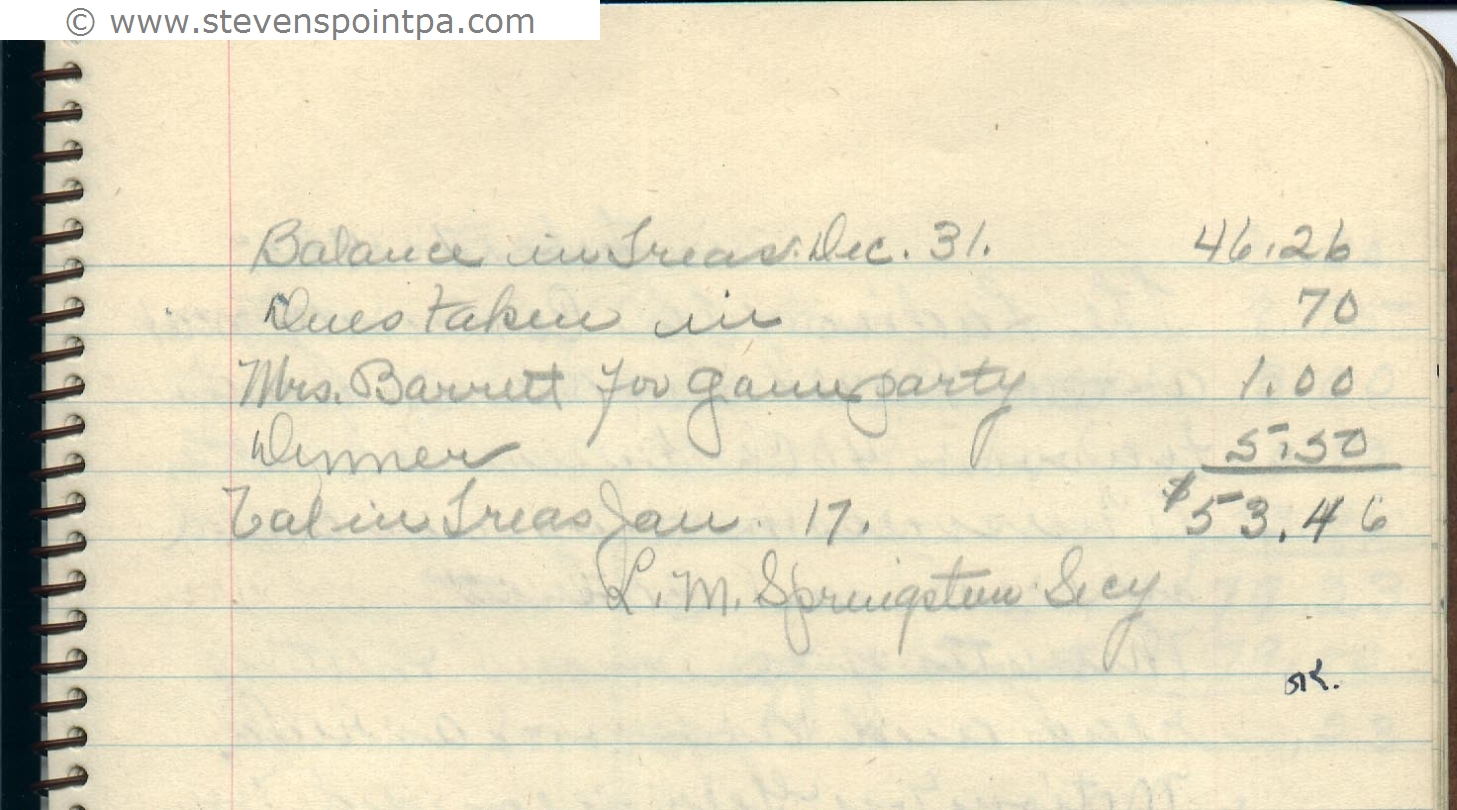 © www.stevenspointpa.com
Balance in Treas. Dec. 31. 46.26
Dues taken in 70
Mrs. Barrett for game party 1.00
Dinner 5.50
Bal in Treas Jan. 17. $53.46
L. M. Springsteen Secy
OK.